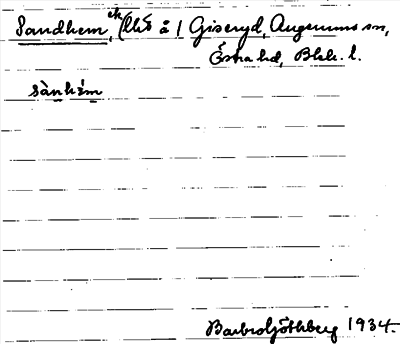 Sandhem, ek (lht å 1 Giseryd, Augerums sn,
Östra hd, Blek. l.
sànhém
Barbro Göthberg 1934.